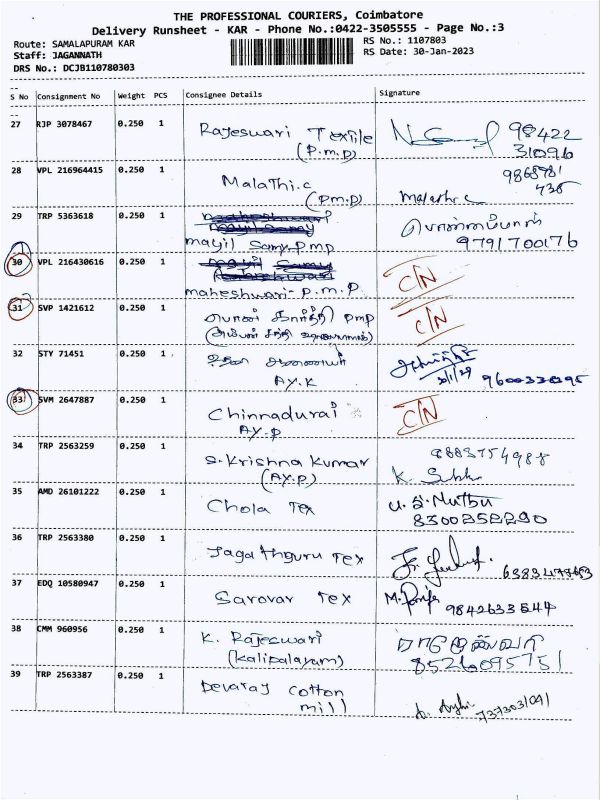 THE PROFESSIONAL COURIERS, Coimbatore
Delivery Runsheet - KAR - Phone No.:0422-3505555 - Page No.:3
Route: SAMALAPURAM KAR
RS No.: 1107803
Staff: JAGANNATH
RS Date: 30-Jan-2023
DRS No.: DCJB110780303
S No Consignment No Weight PCS Consignee Details Signature
27 RJP 3078467 0.250 1 Rajeswari Textile 98422
(P.m.p) 31096
28 VPL 216964415 0.250 1 Malathi.c
(pm.p) Malathi.c
29 TRP 5363618 0.250 1
mayil Samy.pmp 9791700176
30 VPL 216430616 0.250 1 C/N
maheshwari- p.m.p.
31 SVP 1421612 0.250 1 பொன் கார்த்தி pmp C/N
32 STY 71451 0.250 1
AY.K 9600338295
33 SVM 2647887 0.250 1 Chinnadurai C/N
AY.p
34 TRP 2563259 0.250 1 S.Krishna Kumar 8883754988
(AY.p)
35 AMD 26101222 0.250 1 Chola Tex
8300252290
36 TRP 2563380 0.250 1 Jagathguru Tex
37 EDQ 10580947 0.250 1 Sarovar Tex 9842633544
38 CMM 960956 0.250 1 K. Rajeswari ராஜேஸ்வரி
(Kalipalayam) 8526095751
39 TRP 2563387 0.250 1 Devaraj cotton
mill